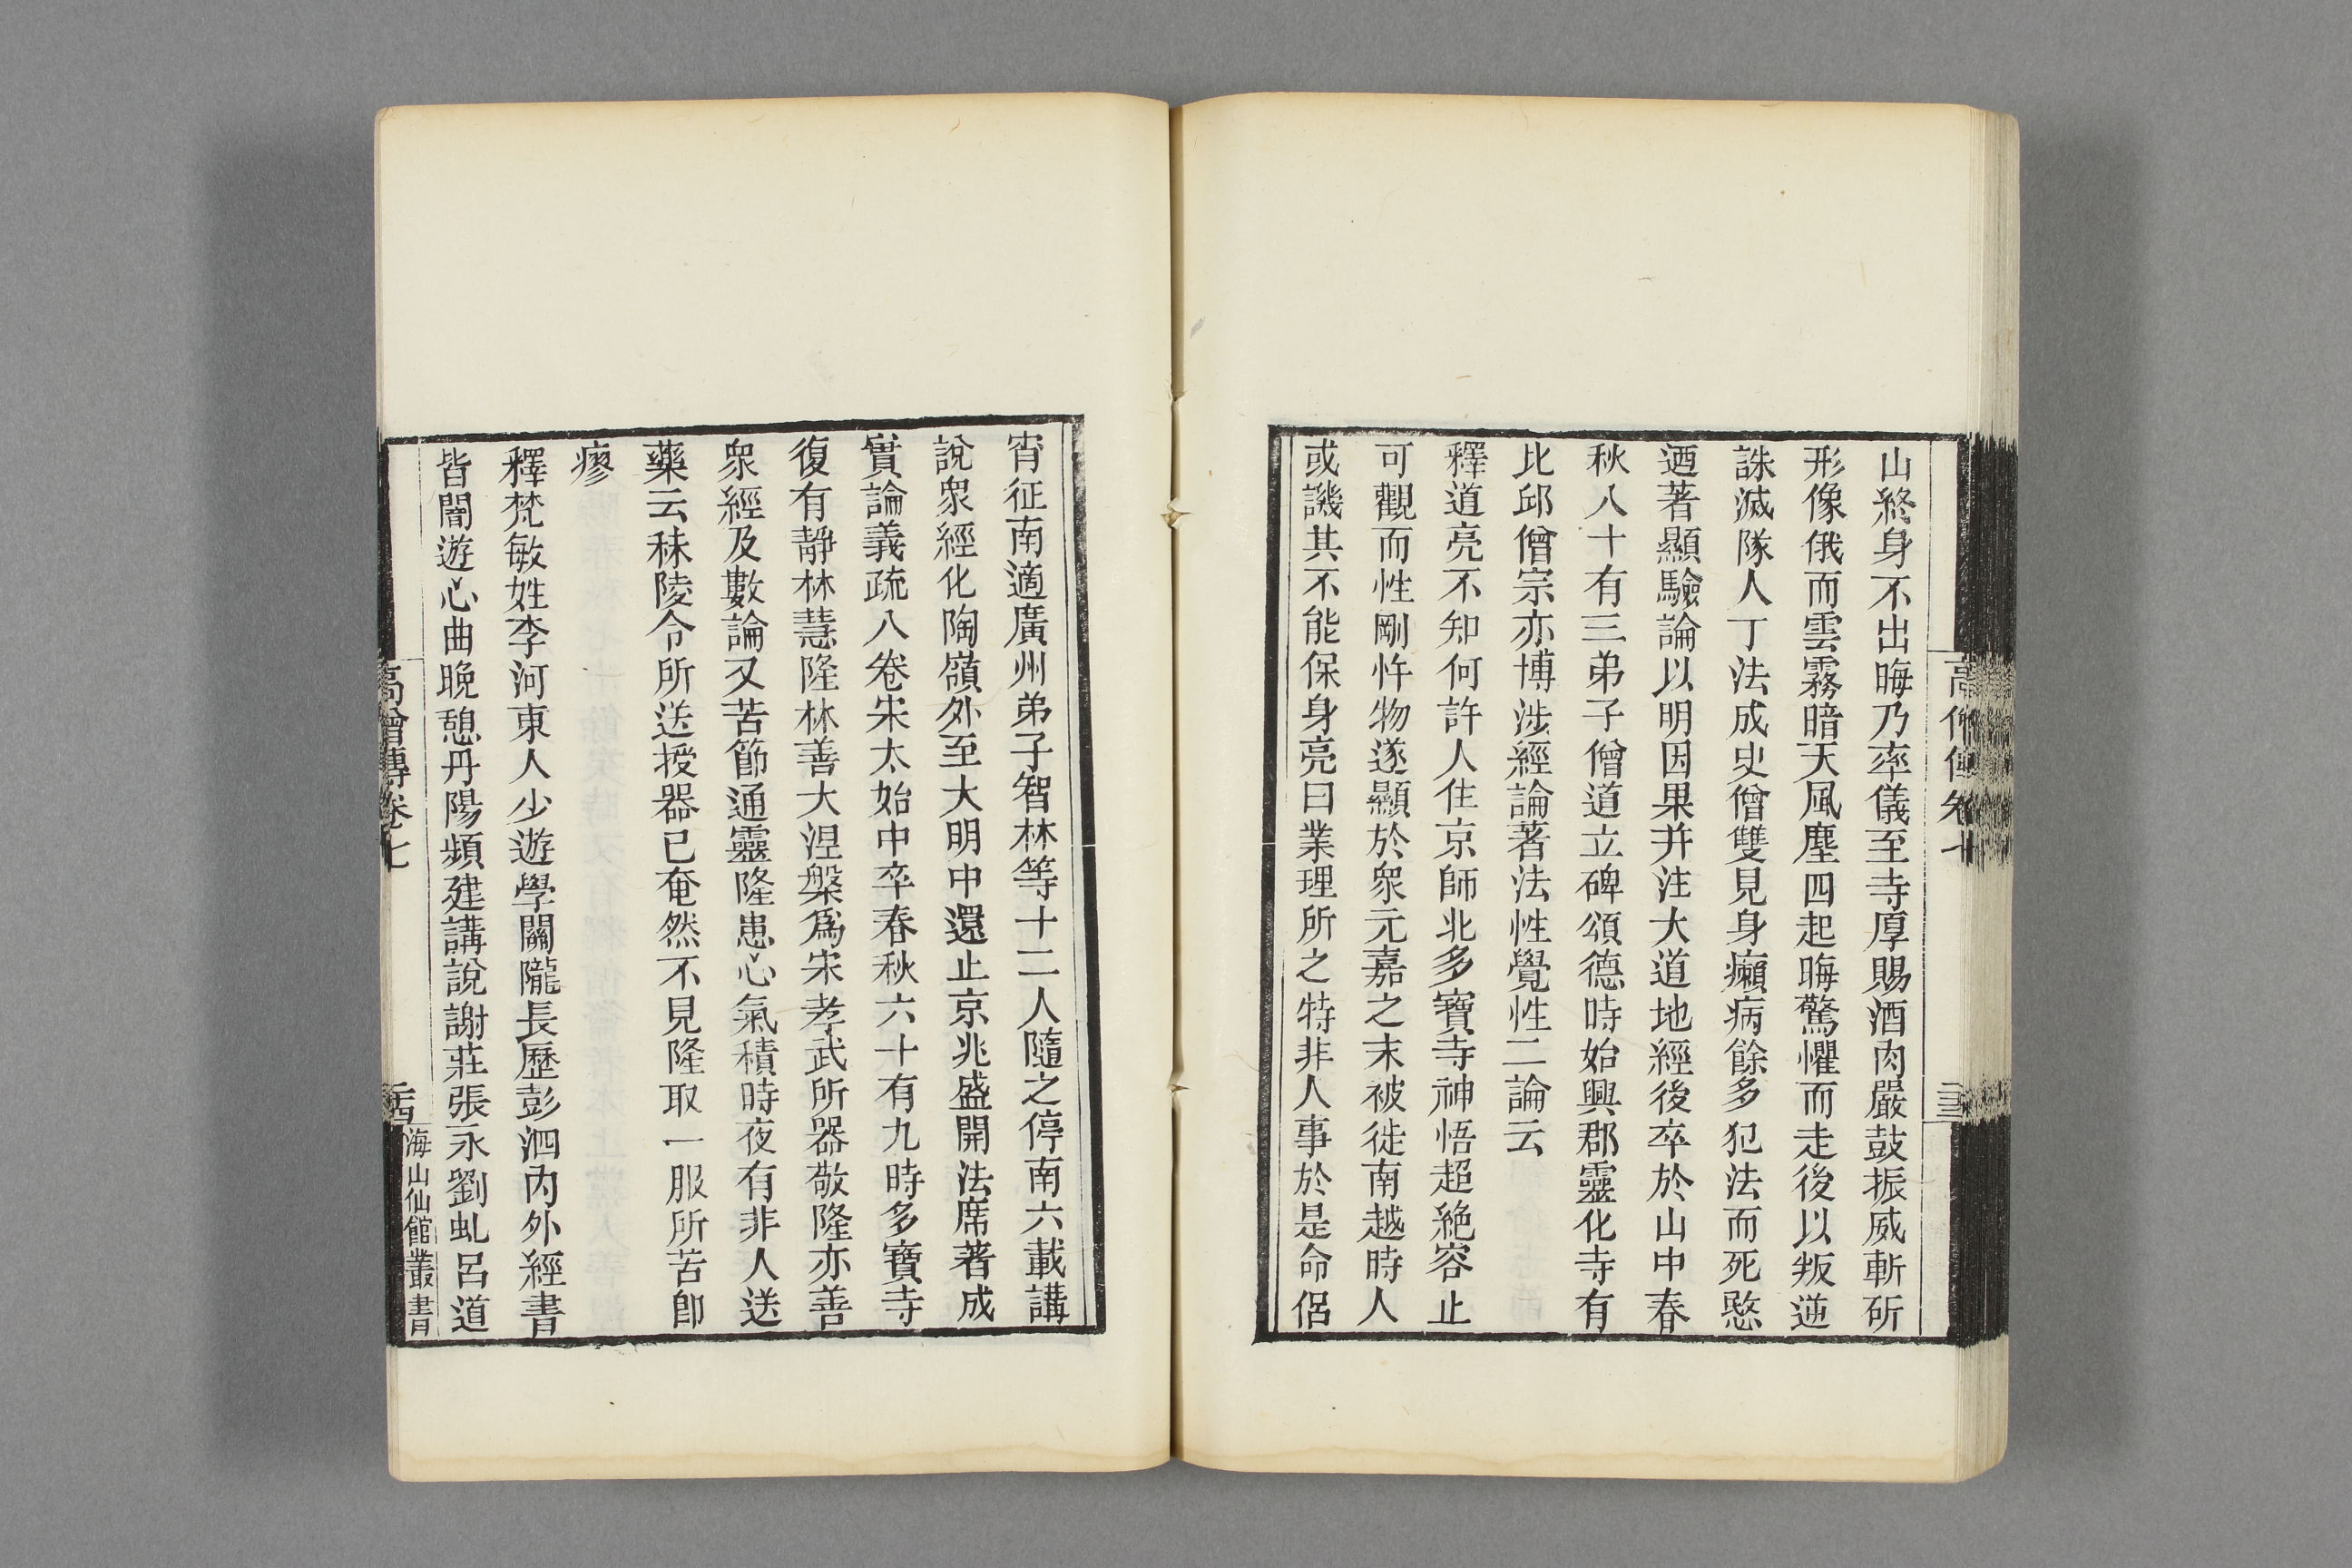 山終身不出晦乃率儀至寺厚賜酒肉嚴鼓振威斬斫
形像俄而雲霧暗天風塵四起晦驚懼而走後以叛逆
誅滅隊人丁法成史僧雙見身癩病餘多犯法而死愍
迺著顯驗論以明因果并注大道地經後卒於山中春
秋八十有三弟子僧道立碑頌德時始興郡靈化寺有
比邱僧宗亦博涉經論著法性覺性二論云
釋道亮不知何許人住京師北多寶寺神悟超絶容止
可觀而性剛忤物遂顯於衆元嘉之末被徙南越時人
或譏其不能保身亮曰業理所之特非人事於是命侶
宵征南適廣州弟子智林等十二人隨之停南六載講
說衆經化陶嶺外至大明中還止京兆盛開法席著成
實論義疏八卷宋太始中卒春秋六十有九時多寶寺
復有靜林慧隆林善大涅槃爲宋孝武所器敬隆亦善
衆經及數論又苦節通靈隆患心氣積時夜有非人送
藥云秣陵令所送授器已奄然不見隆取一服所苦卽
瘳
釋梵敏姓李河東人少遊學關隴長歷彭泗內外經書
皆闇遊心曲晚憩丹陽頻建講說謝莊張永劉虬呂道
高僧傳卷七
海山仙館叢書